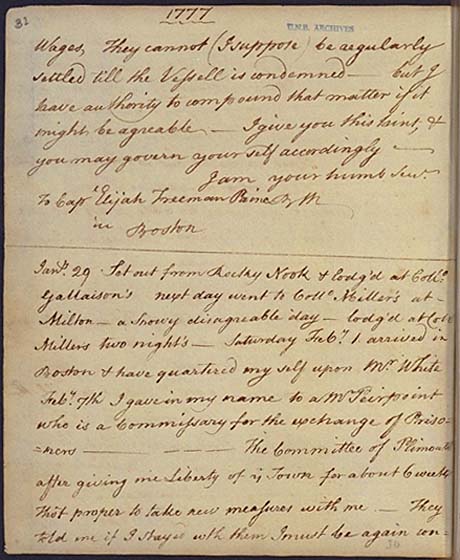 32
1777
U.N.B. ARCHIVES
Wages, They cannot (I suppose) be regularly
settled till the Vessell is condemned — but I
have authority to compound that matter if it
might be agreable — I give you this hint, &
you may govern your self accordingly —
I am your humb Serv.t
To Cap.t Elijah Freeman Paine
in Boston
Jan.y 29 Set out from Rocky Nook & lodg'd at Coll.o
Gallaison's next day went to Coll.o Miller's at
Milton — a Snowy disagreable day — lodg'd at Coll
Millers two night's — Saturday Feb.y 1. arrived in
Boston & have quartered my self upon M.r White
Feb.y 7th I gave in my name to a M.r Peirpoint
who is a Commissary for the exchange of Priso=
=ners — — — The Committee of Plimouth
after giving me Liberty of y Town for about 6 weeks
thot proper to take new measures with me — They
told me if I stayed wth them I must be again con=